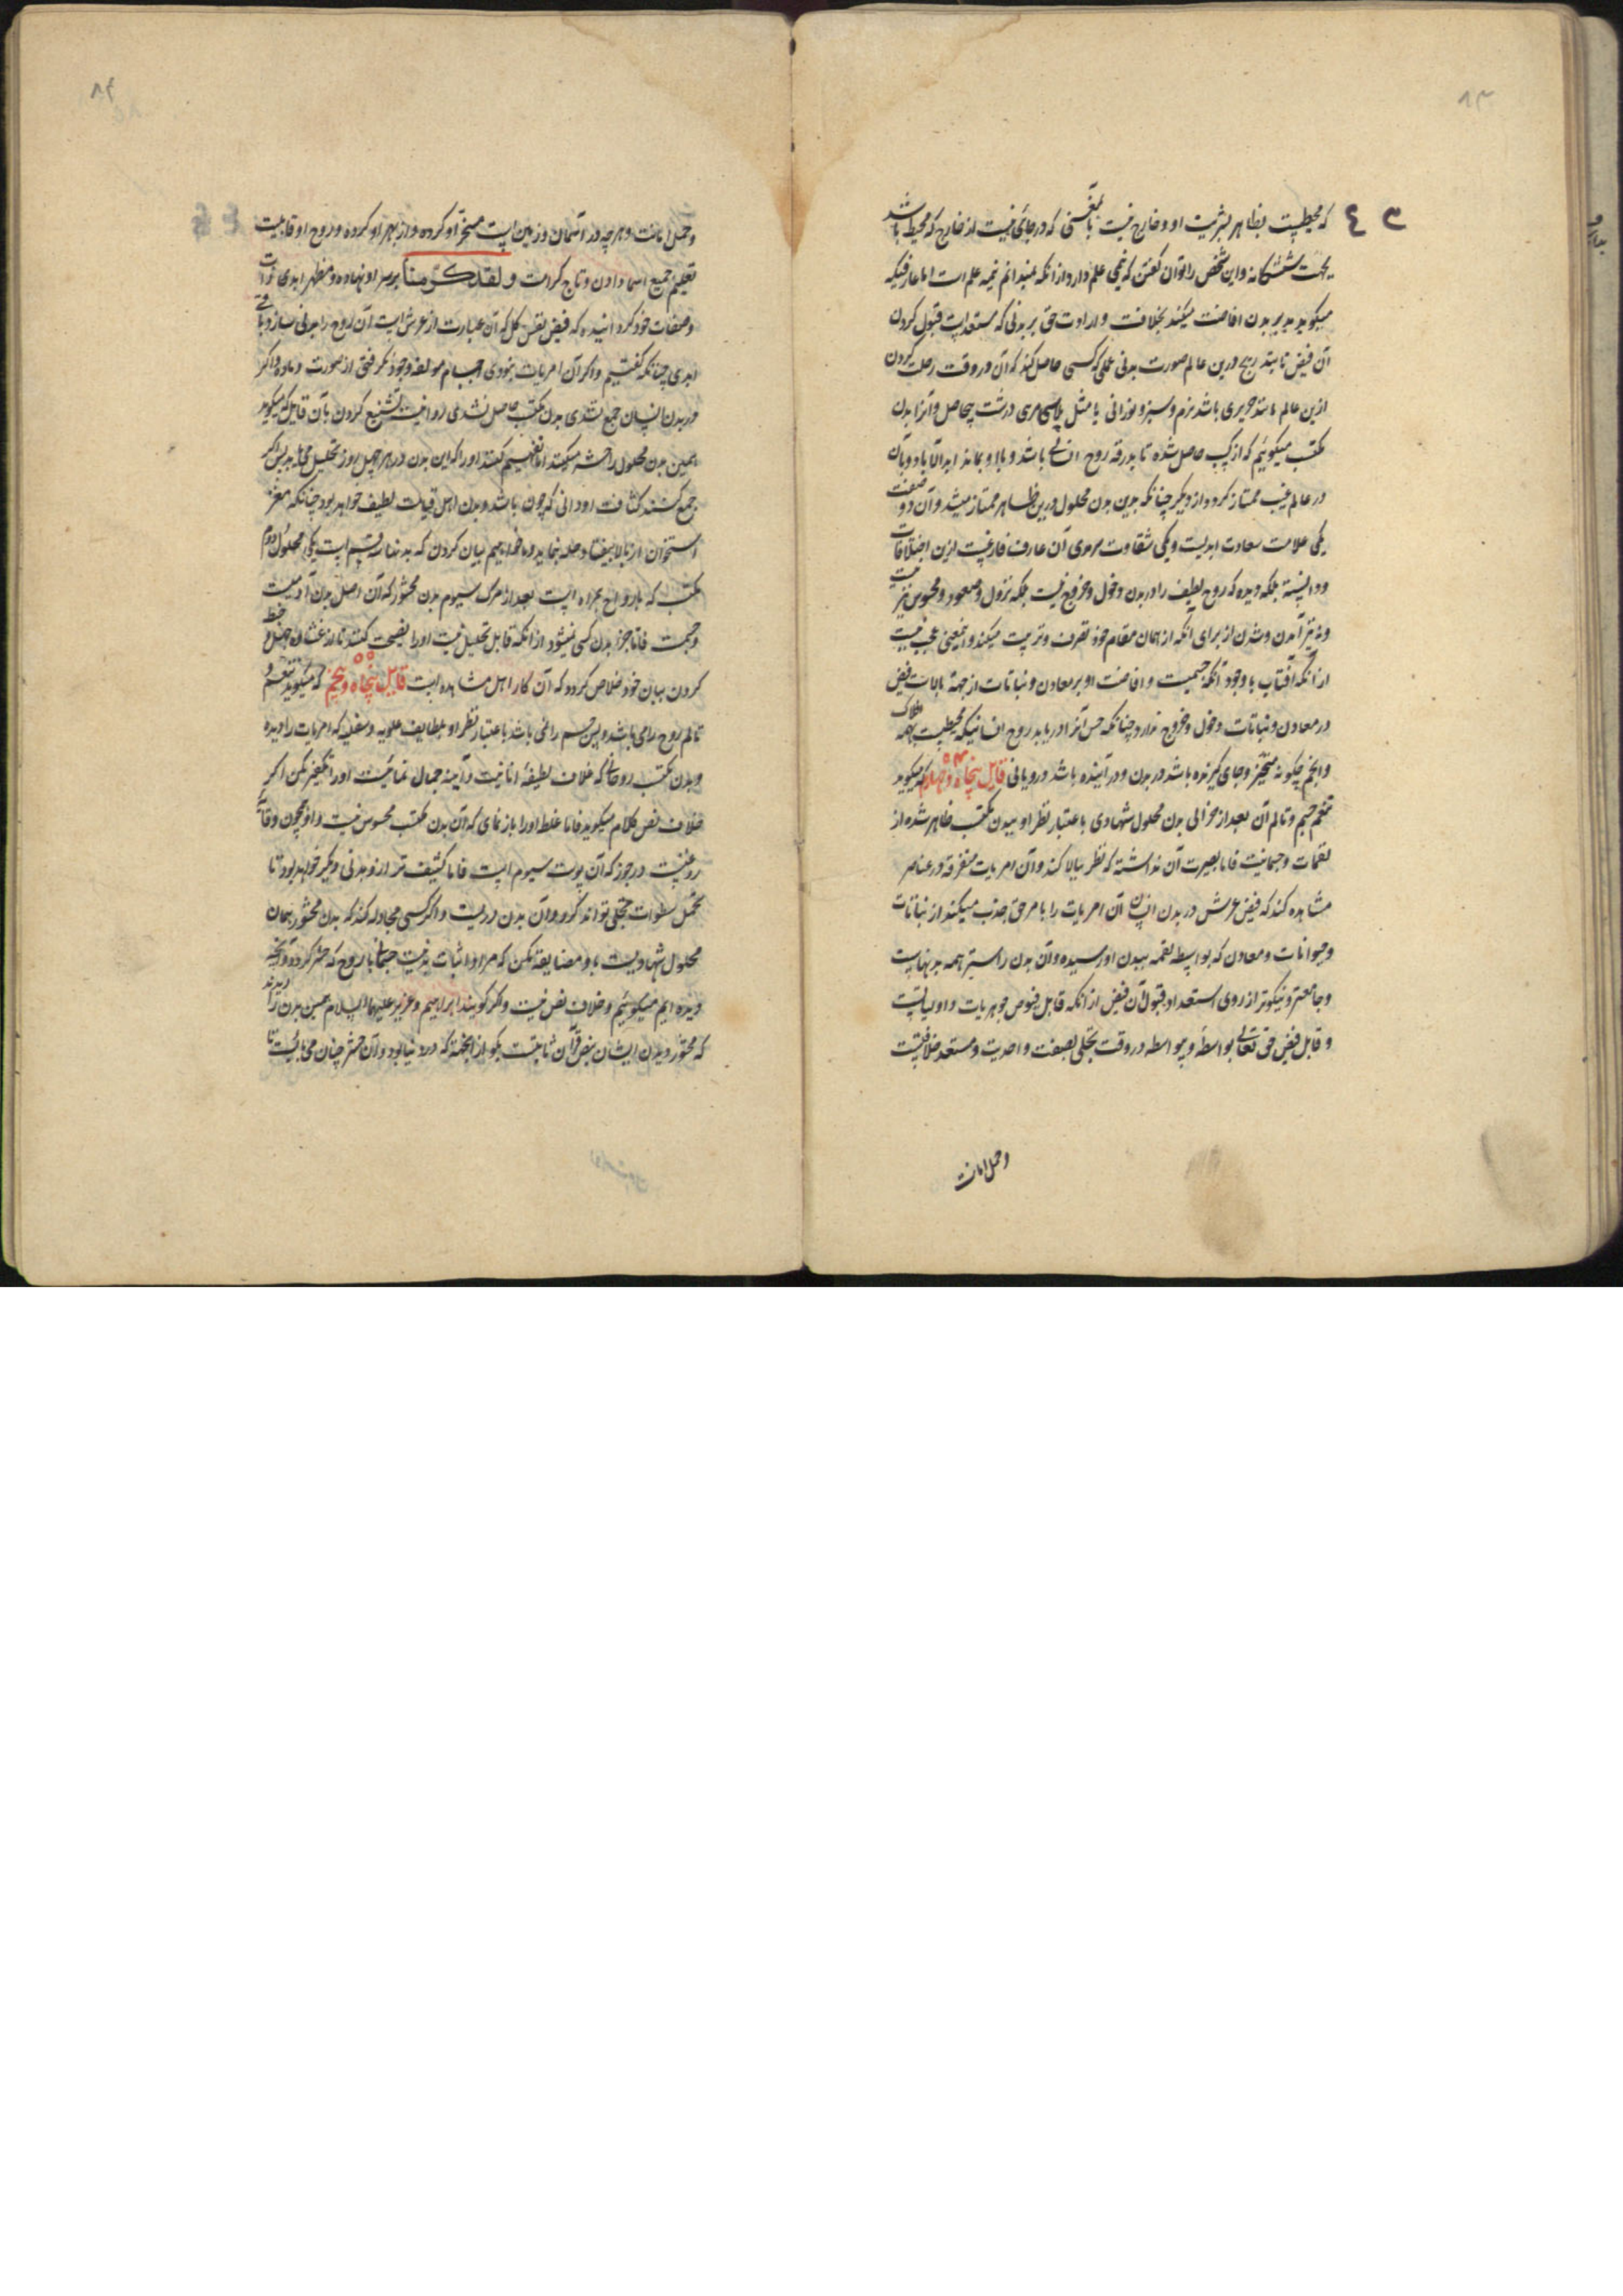 که محیطست بظاهر بشریت او و خارج نیست بآن معنی که در جائی نیست از خارج که محیط باشد
بجهت ششگانه و این شخص را توان گفتن که نیمی علم دارد از آنکه نمیدانم نیمه علم است اما عارفیکه
میگوید مدبر بدن افاضت میکند بخلافت و ارادت حق بر بدنی که مستعد است قبول کردن
آن فیض تا بتدریج درین عالم صورت بدنی عملی که کسی حاصل کند که آن در وقت رحلت کردن
ازین عالم مانند حریری باشد نرم و سبز و نورانی یا مثل پلاسی درشت بیحاصل و آنرا بدن
مکتسب میگوئیم که از کسب حاصل شده تا بدرقه روح انسانی باشد و با او بماند ابد الآباد و بآن
در عالم غیب ممتاز گردد از دیگر چنانکه بدین بدن محلول درین ظاهر ممتاز میشد و آن دو صفت
یکی علامت سعادت ابدیست و یکی شقاوت سرمدی آن عارف فارغست ازین اختلافات
و دانسته بلکه دیده که روح لطیف را در بدن دخول و خروج نیست بلکه نزول و صعود و محبوس نیز نیست
و نه نیز آمدن و شدن از برای آنکه از همان مقام خود تصرف و تربیت میکند و اینمعنی عجب نیست
از آنکه آفتاب با وجود آنکه جسمیست و افاضت او بر معادن و نباتات از جهة بالاست فیض
در معادن و نباتات دخول و خروج ندارد چنانکه حس آنرا دریابد روح انسانیکه محیطست بهمه افلاک
و انجم چگونه متحیز و جای گیرنده باشد در بدن و در آینده باشد در وی یا نی قایل پنجاه و چهارم که میگوید
تنعم جسم و تألم آن بعد از خرابی بدن محلول شهادی باعتبار نظر او ببدن مکتسب ظاهر شده از
لقمات و جسمانیت فاما بصیرت آن نداشته که نظر ببالا کند و آن امریات متفرقه در عناصر
مشاهده کند که فیض عرش در بدن انسان آن امریات را بامر حق جذب میکند از نباتات
و حیوانات و معادن که بواسطه لقمه ببدن او رسیده و آن بدن راستتر همه بدنهاست
و جامعتر و نیکوتر از روی استعداد قبول آن فیض از آنکه قابل فیوض جوهریات و اولیاتست
و قابل فیض حق تعالی بواسطه و بیواسطه در وقت تجلی بصفت واحدیت و مستعد خلافتست
وحمل امانت
وحمل امانت و هرچه در آسمان و زمین است مسخر او کرده و از بهر او کرده و روح او قابلیت
تعلیم جمیع اسما دادن و تاج کرامت و لقد کرمنا بر سر او نهاده و مظهر ابدی ذات
و صفات خود گردانیده که فیض نفس کل که آن عبارت از عرش است آن روح را بدنی سازد باقی
ابدی چنانکه گفتیم و اگر آن امریات نبودی اجسام مولفه وجود نگرفتی از صورت و ماده و اگر
در بدن انسان جمع نشدی بدن مکتسب حاصل نشدی روا نیست تشنیع کردن بآن قایل که میگوید
همین بدن محلول را حشر میکنند اما تفهیم کنند او را که این بدن در هر چهل روز تحلیل می یابد پس اگر
جمع کنند کثافت او دانی که چون باشد و بدن اهل قیامت لطیف خواهد بود چنانکه مغز
استخوان از بالا بیفتاد حله بنماید و ما خواهیم بیان کردن که بدنها سه قسم است یکی محلول دوم
مکتسب که با ارواح همراه است بعد از مرگ سیوم بدن محشور که آن اصل بدن آدمیست
و حبت فاما جزو بدن کسی نمیشود از آنکه قابل تحلیل نیست او را نصیحت کنند تا از غشیان جهل و خبط
کردن بیان خود خلاص گردد که آن کار اهل مشاهده است قایل پنجاه و پنجم که میگوید تنعم و
تألم روح را می باشد و پس جسم را نمی باشد باعتبار نظر او بلطایف علویه و سفلیه که امریات را دیده
و بدن مکتسب روحانی که غلاف لطیفه انانیت و آینه جمال نمائیست او را تکفیر مکن اگر
خلاف نص کلام میگوید فاما غلط او را باز نمای که آن بدن مکتسب محسوس نیست و او همچون
روغنیست در جوز که آن پوست سیوم است فاما کثیف تر از او بدنی دیگر خواهد بود تا
تحمل سطوات تجلی تواند کرد و آن بدن دریست و اگر کسی مجادله کند که بدن محشور همان
محلول شهادیست با او مضایقه مکن که مراد اثبات بدنیست جسمانی با روح که حشر گردد و آنچه
دیده ایم میگوئیم و خلاف نص نیست و اگر گویند ابراهیم و عزیر علیهما السلام همین بدن را دیدند
که محشور و بدن ایشان بنص قرآن ثابتست بگو از آنجهة که در دنیا بود و آن حشر چنان می بایست تا